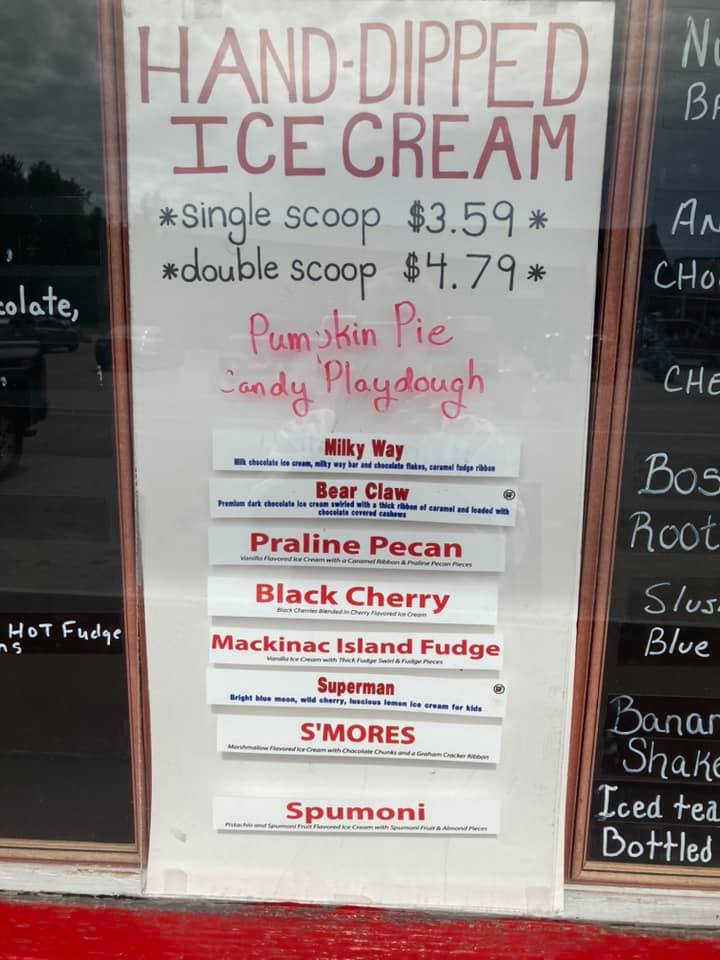 HAND-DIPPED
ICE CREAM
*single scoop $3.59*
*double scoop $4.79*
Pumpkin Pie
Candy Playdough
Milky Way
Milk chocolate ice cream, milky way bar and chocolate flakes, caramel fudge ribbon
Bear Claw
Premium dark chocolate ice cream swirled with a thick ribbon of caramel and loaded with
chocolate covered cashews
Praline Pecan
Vanilla Flavored Ice Cream with a Caramel Ribbon & Praline Pecan Pieces
Black Cherry
Black Cherries Blended in Cherry Flavored Ice Cream
Mackinac Island Fudge
Vanilla Ice Cream with Thick Fudge Swirl & Fudge Pieces
Superman
Bright blue moon, wild cherry, luscious lemon ice cream for kids
S'MORES
Marshmallow Flavored Ice Cream with Chocolate Chunks and a Graham Cracker Ribbon
Spumoni
Pistachio and Spumoni Fruit Flavored Ice Cream with Spumoni Fruit & Almond Pieces
olate,
HOT Fudge
ns
AN
CHO
CHE
Bos
Root
Slus
Blue
Banan
Shake
Iced tea
Bottled